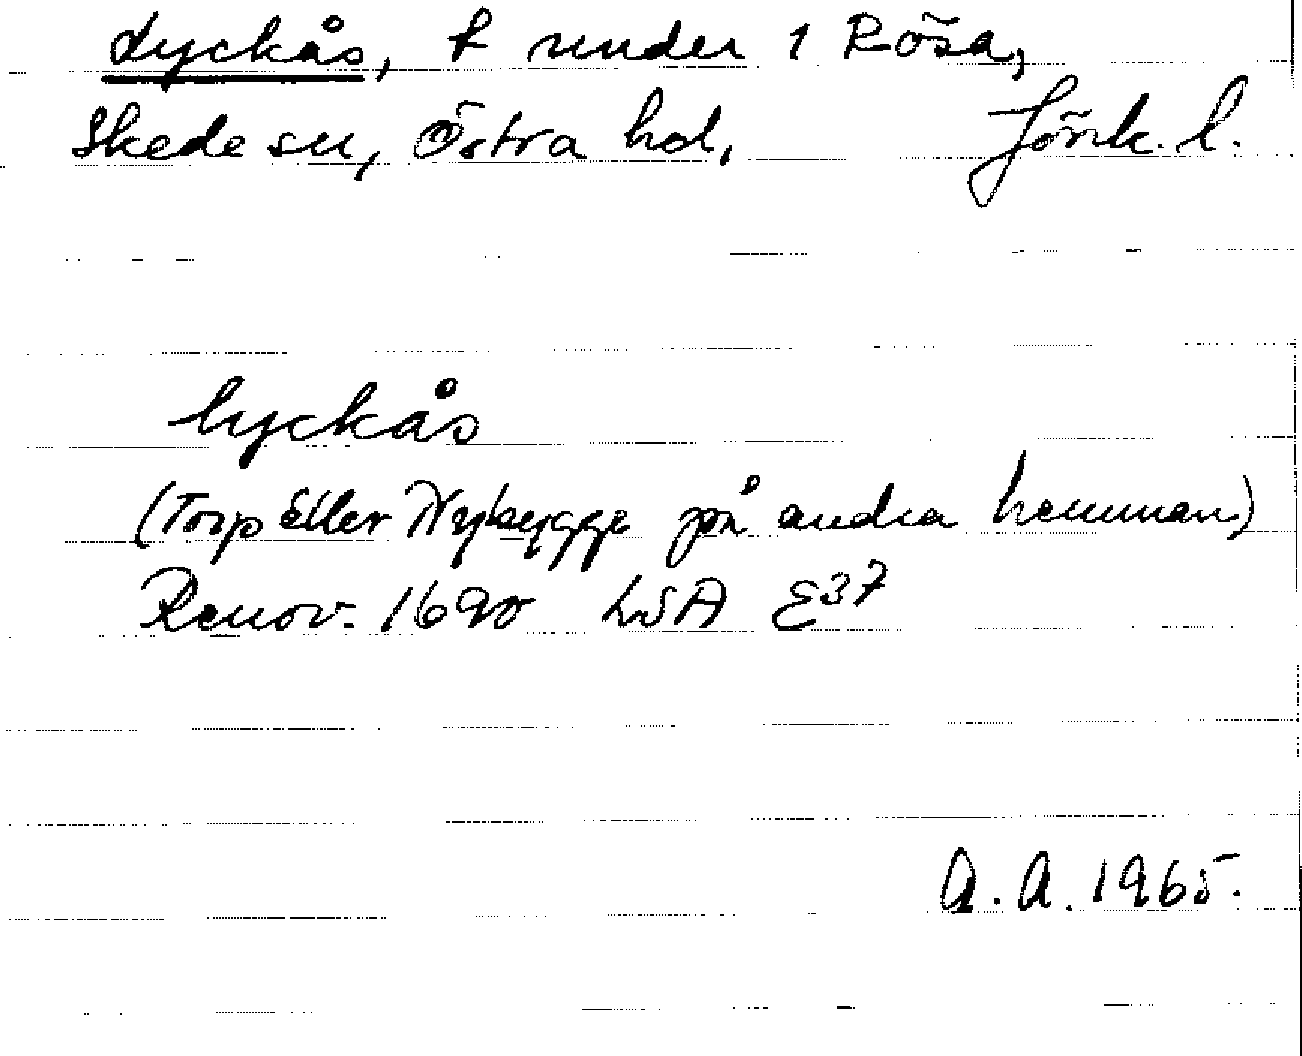 Lyckås, t under 1 Rösa,
Skede sn, Östra hd, Jönk. l.
lyckås
(Torp Eller Nybygge på andra hemman)
Renov. 1690 LSA E37
A. A. 1965.